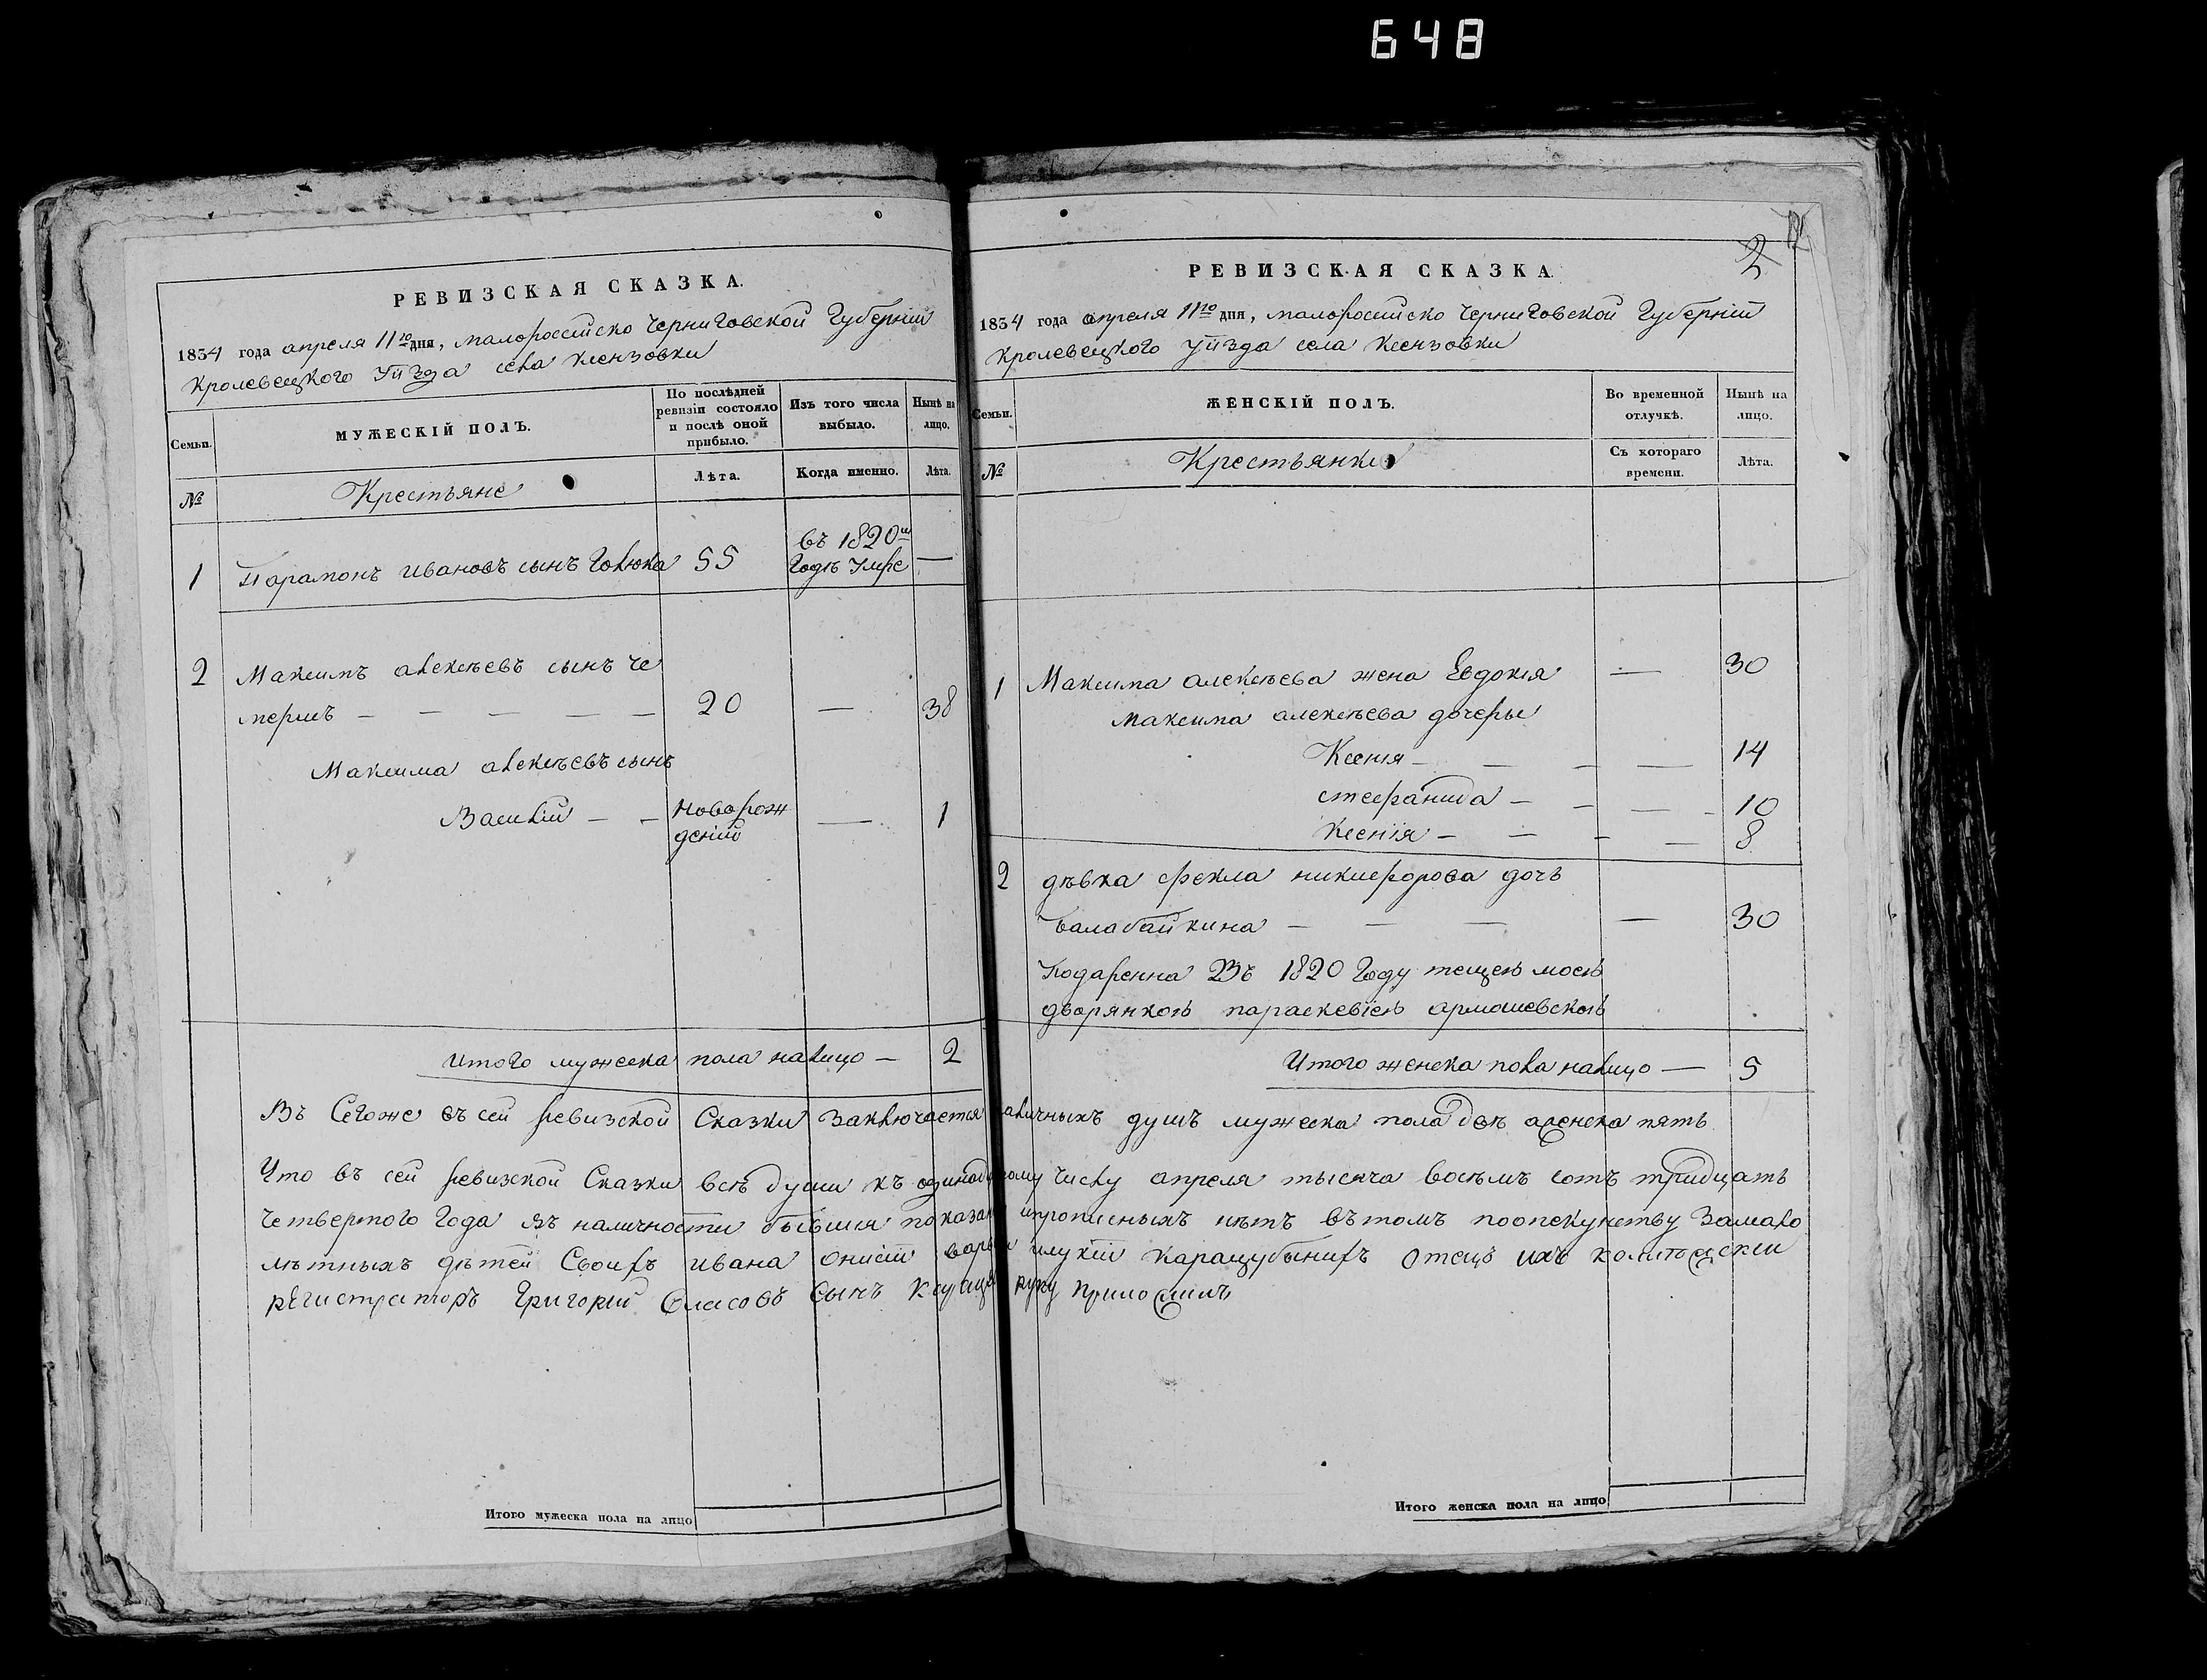 648
РЕВИЗСКАЯ СКАЗКА.
1834 года апреля 11го дня, малоросийско Черниговской Губерніи
Кролевецкого Уѣзда села Ксензовки
Семьи.
МУЖЕСКІЙ ПОЛЪ.
По послѣдней ревизіи состояло и послѣ оной прибыло.
Изъ того числа выбыло.
Нынѣ на лицо.
№
Крестьяне
Лѣта.
Когда именно.
Лѣта.
въ 1820м
1 Парамонъ Ивановъ сынъ Голюка 55 Годѣ Умре —
2 Максимъ алексѣевъ сынъ Че
мерисъ — — — — — 20 — 38
Максима алексѣевъ сынъ
Василій — — Новорож — 1
деній
Итого мужеска пола налицо — 2
Итого мужеска пола на лицо
2
РЕВИЗСКАЯ СКАЗКА
1834 года апреля 11го дня, малоросийско Черниговской Губерніи
Кролевецкого Уѣзда села Ксензовки
Семьи.
ЖЕНСКІЙ ПОЛЪ.
Во временной отлучкѣ.
Нынѣ на лицо.
№
Крестьянки
Съ котораго времени.
Лѣта.
1 Максима алексѣева жена Евдокія — 30
Максима алексѣева дочеры
Ксенія — — — — 14
стефанида — — — — 10
Ксенїя — — — — 8
2 дѣвка фекла никифорова дочь
Балабайкина — — — — 30
Подаренна Въ 1820 Году тещею моею
дворянкою параскевїею армашевскою
Итого женска пола налицо — 5
Въ Сегоже въ сей ревизской Сказки Заключается наличныхъ душъ мужеска пола двѣ аженска пять
Что въ сей ревизкой Сказки всѣ души къ одинадцатому числу апреля тысяча восѣмъ сотъ тридцать
Четвертого Года въ наличности бывшия показаны ипрописныхъ нѣтъ вътомъ поопекунству Замало
лѣтныхъ дѣтей Своихъ ивана онисіи варвары Карацубынихъ отецъ ихъ
регистраторъ Григорий Власовъ Сынъ руку приложилъ
Итого женска пола на лицо